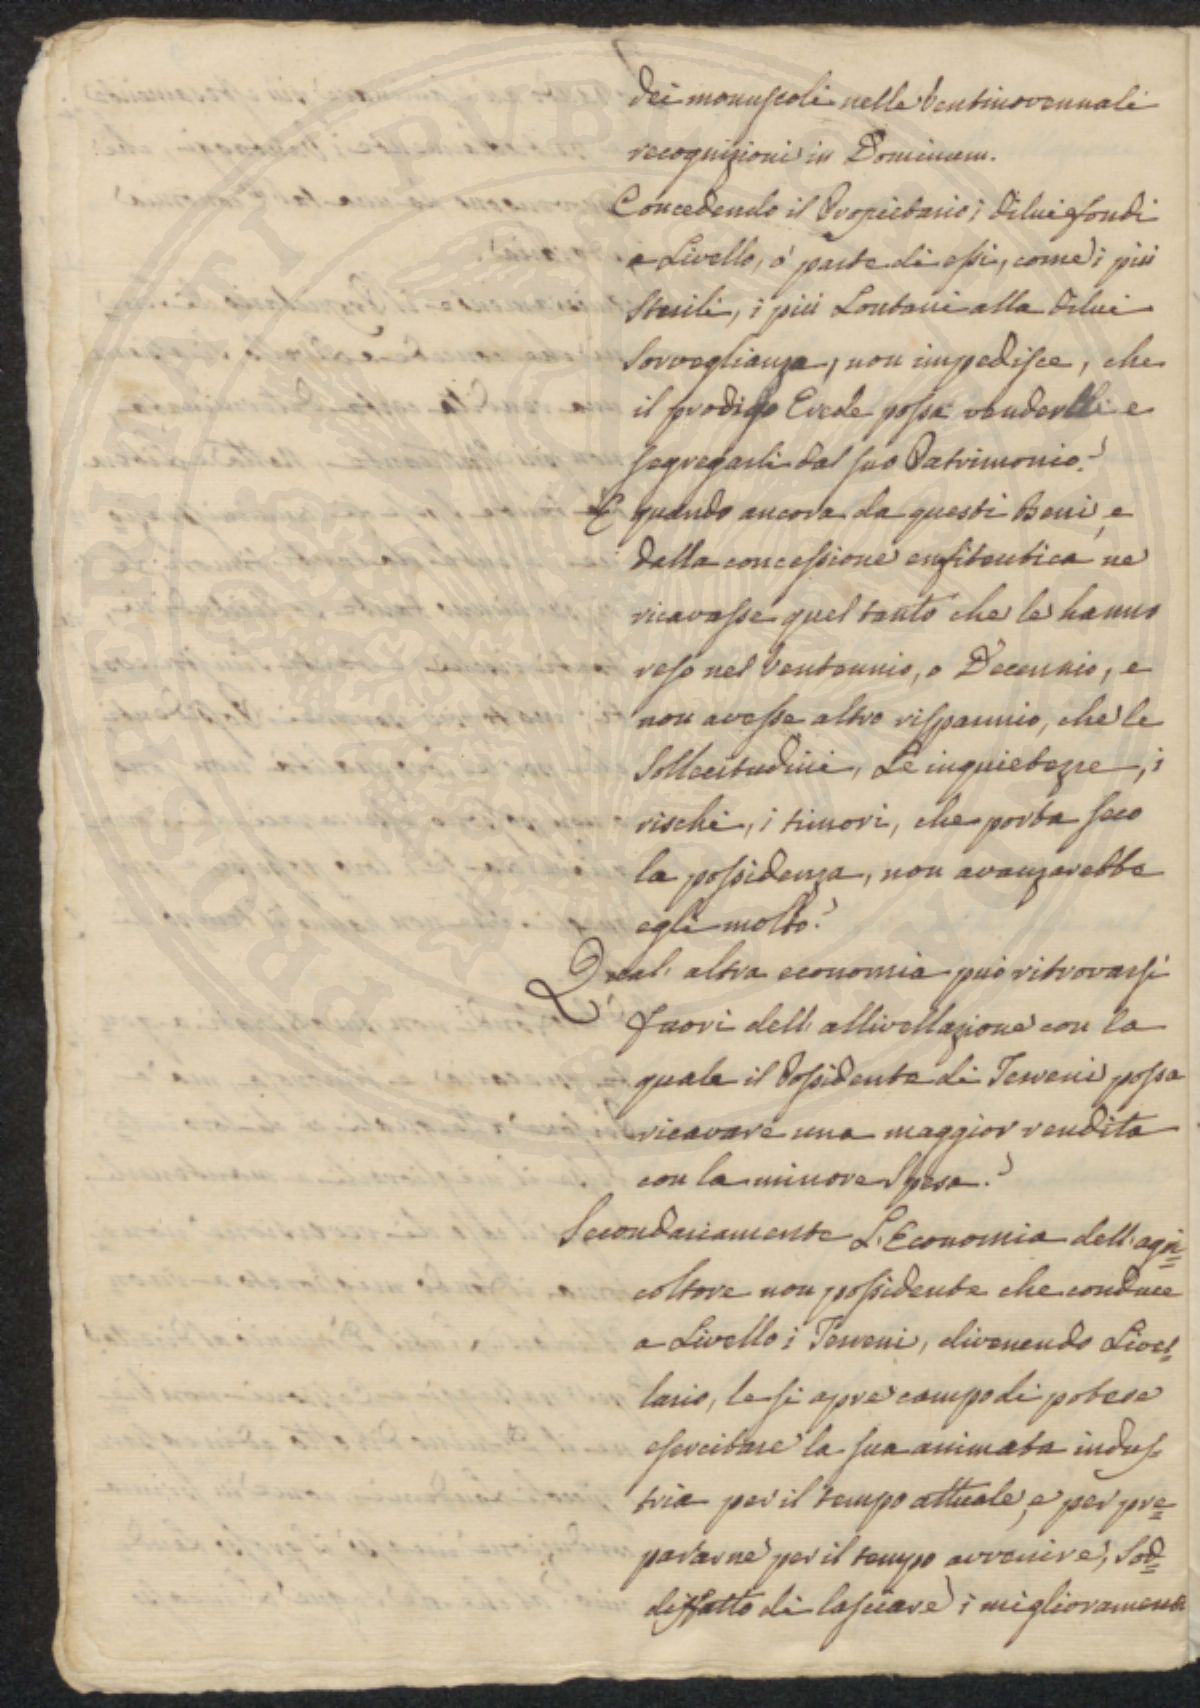 dei monuscoli nelle Ventinovennali
recognizioni in Dominum.
Concedendo il Proprietario i di lui fondi
a Livello, o parte di essi, come i più
sterili, i più Lontani alla di lui
sorveglianza, non impedisce, che
il prodigo Erede possa venderli e
segregarli dal suo Patrimonio?
E quando ancora da questi Beni, e
dalla concessione enfiteutica ne
ricavasse quel tanto che le hanno
reso nel Ventennio, o Decennio, e
non avesse altro risparmio, che le
Sollecitudini, Le inquietezze, i
rischi, i timori, che porta seco
la possidenza, non avanzarebbe
egli molto?
Qual' altra economia può ritrovarsi
fuori dell' allivellazione con la
quale il Possidente di Terreni possa
ricavare una maggior rendita
con la minore Spesa?
Secondariamente L'Economia dell' agri=
coltore non possidente che conduce
a Livello i Terreni, divenendo Livel=
lario, le si apre campo di potere
esercitare la sua animata indus-
tria per il tempo attuale, e per pre=
pararne per il tempo avvenire, Sod=
disfatto di lasciare i miglioramenti